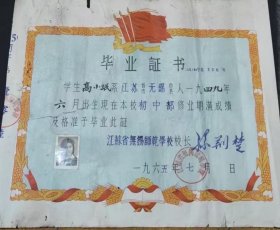 毕业証书
学生高小跃系江苏省无锡市人一九四九年
六月出生現在本校初中部修业期滿成績
及格准于毕业此証
江苏省無錫師范学校校长 孙荆楚
一九六五年七月 日